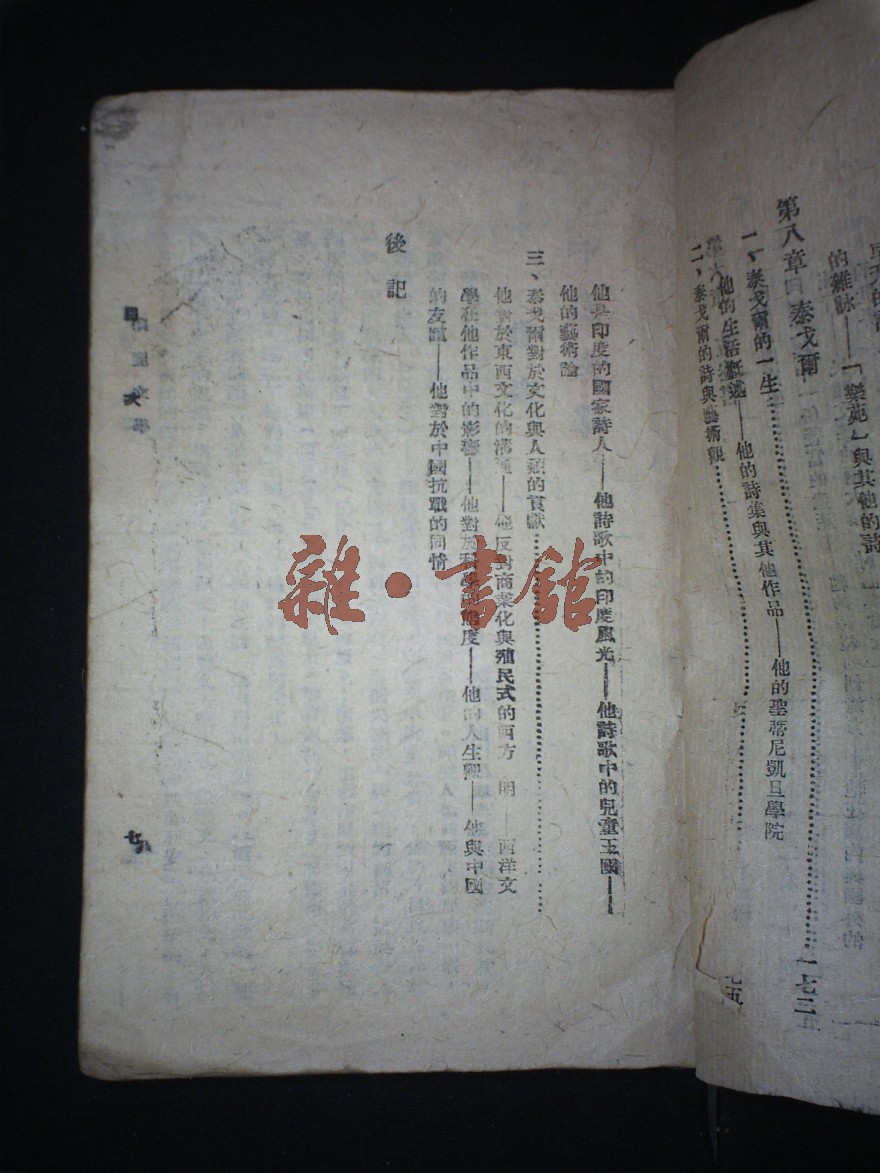 的雜脉——「樂苑」與其他的詩
第八章 泰戈爾
一、泰戈爾的一生……一七三
他的生活概述——他的詩集與其他作品——他的聖蒂尼凱旦學院
二、泰戈爾的詩與藝術觀……
他是印度的國家詩人——他詩歌中的印度風光——他詩歌中的兒童王國——
他的藝術論
三、泰戈爾對於文化與人類的貢獻……
他對於東西文化的溝通——他反對商業化與殖民式的西方 明——西洋文
學在他作品中的影響——他對於科學的態度——他的人生觀——他與中國
的友誼——他對於中國抗戰的同情
後記
印度文學
七
雜·書館